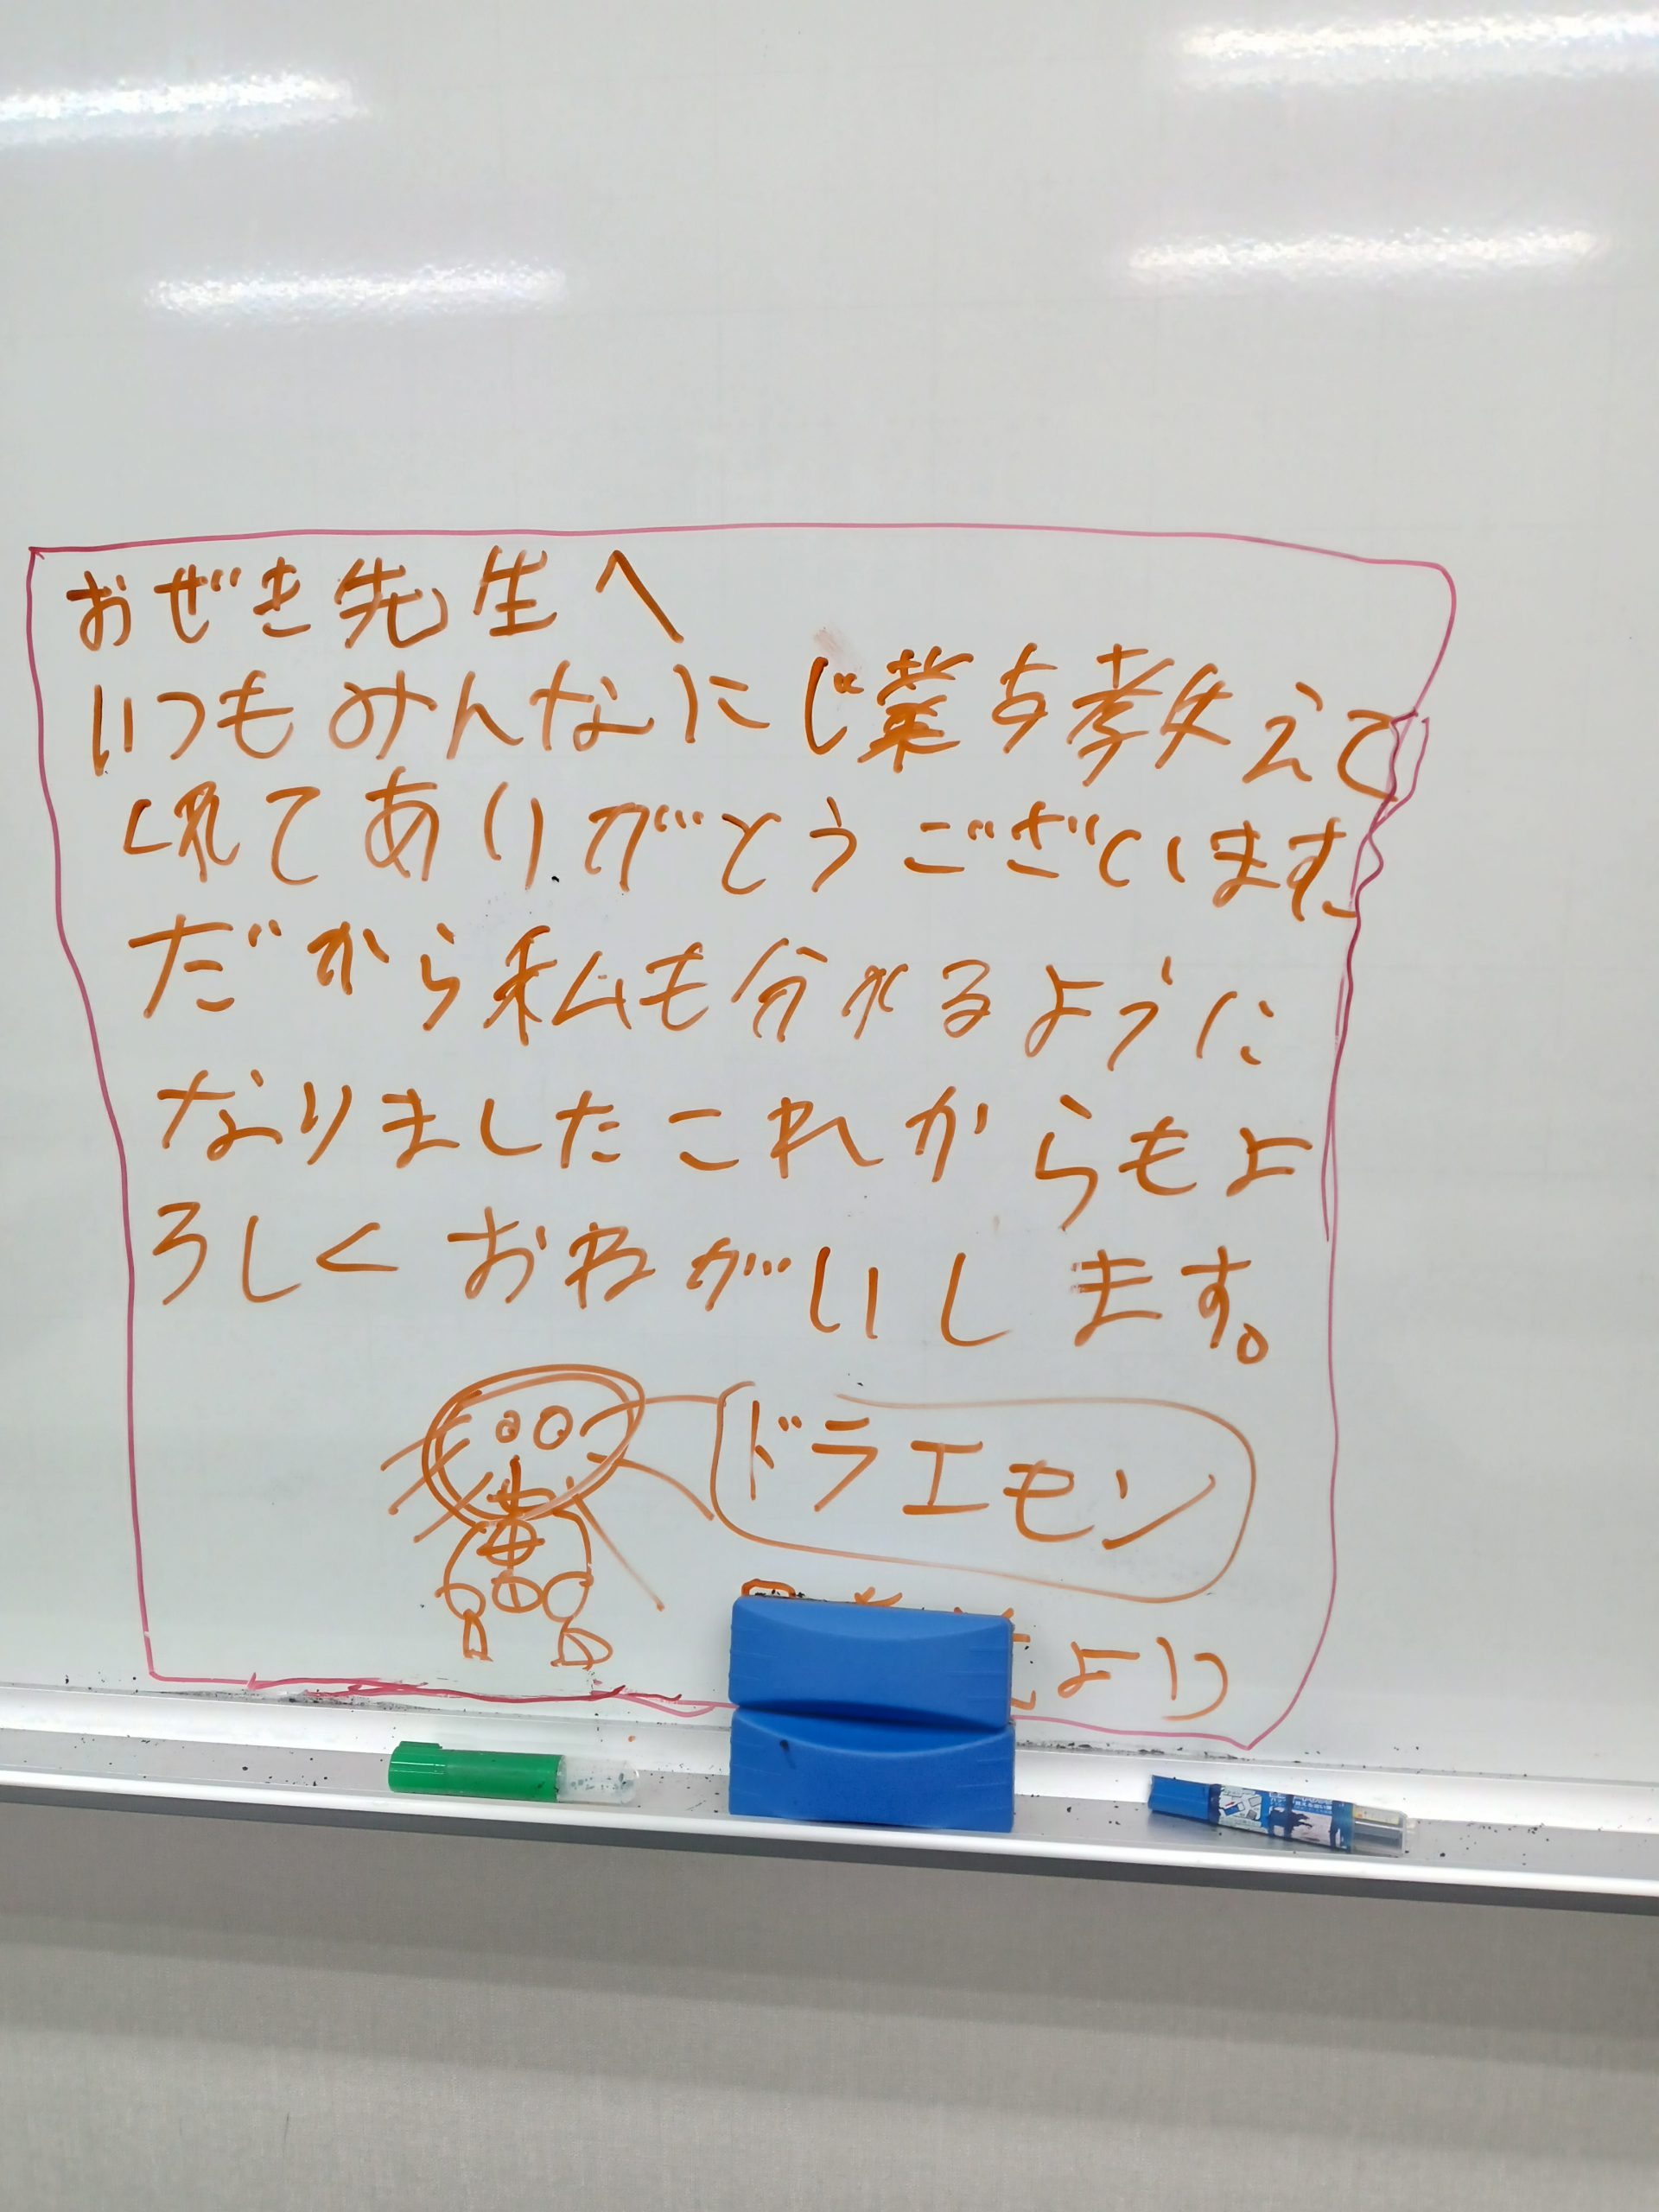 おぜき先生へ
いつもみんなにじ業を教えて
くれてありがとうございます
だから私も分かるように
なりましたこれからもよ
ろしくおねがいします。
ドラエモン
より